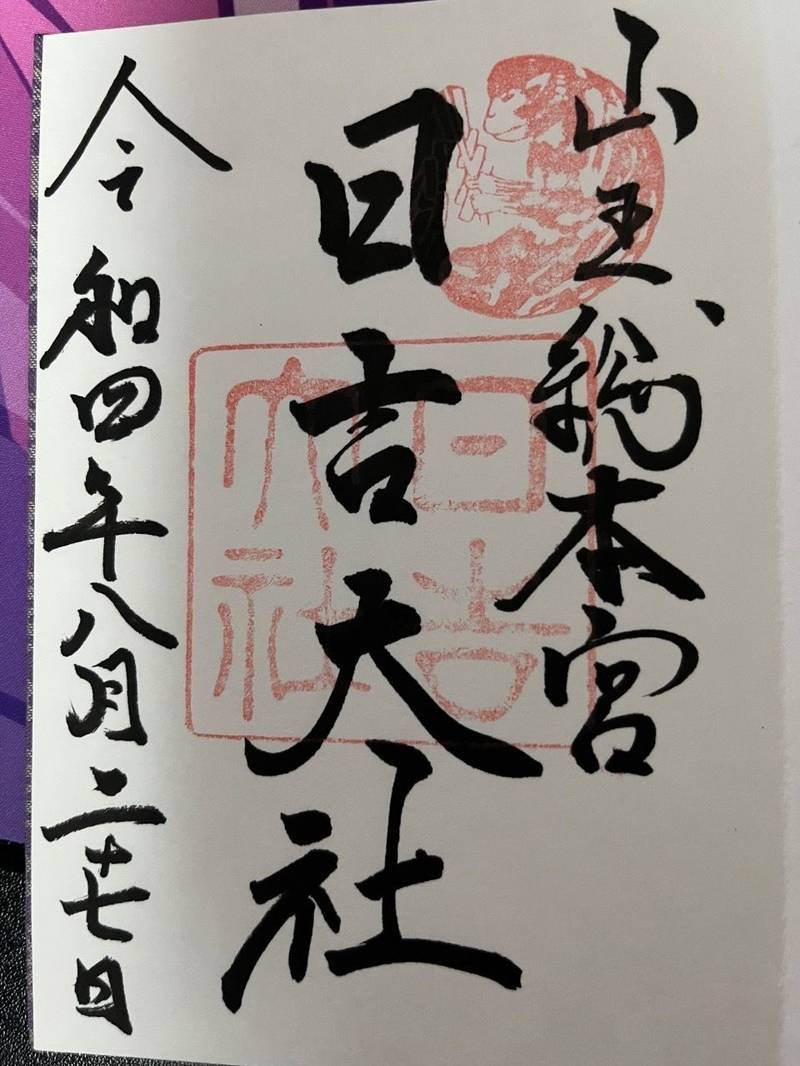 山王総本宮
日吉大社
日吉大社
令和四年八月二十七日